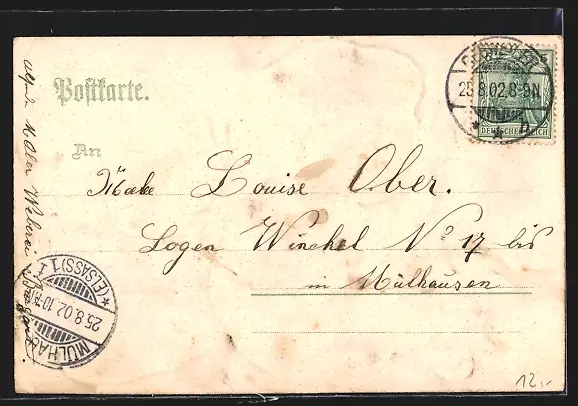 Postkarte.
An
Louise Ober.
Logen Winckel No 17 bis
in Mülhausen
25.8.02.8-9N.
b
DEUTSCHES REICH
MÜLHAUSEN
25.8.02.10-11
(ELSASS) 1
Weberei
12,-